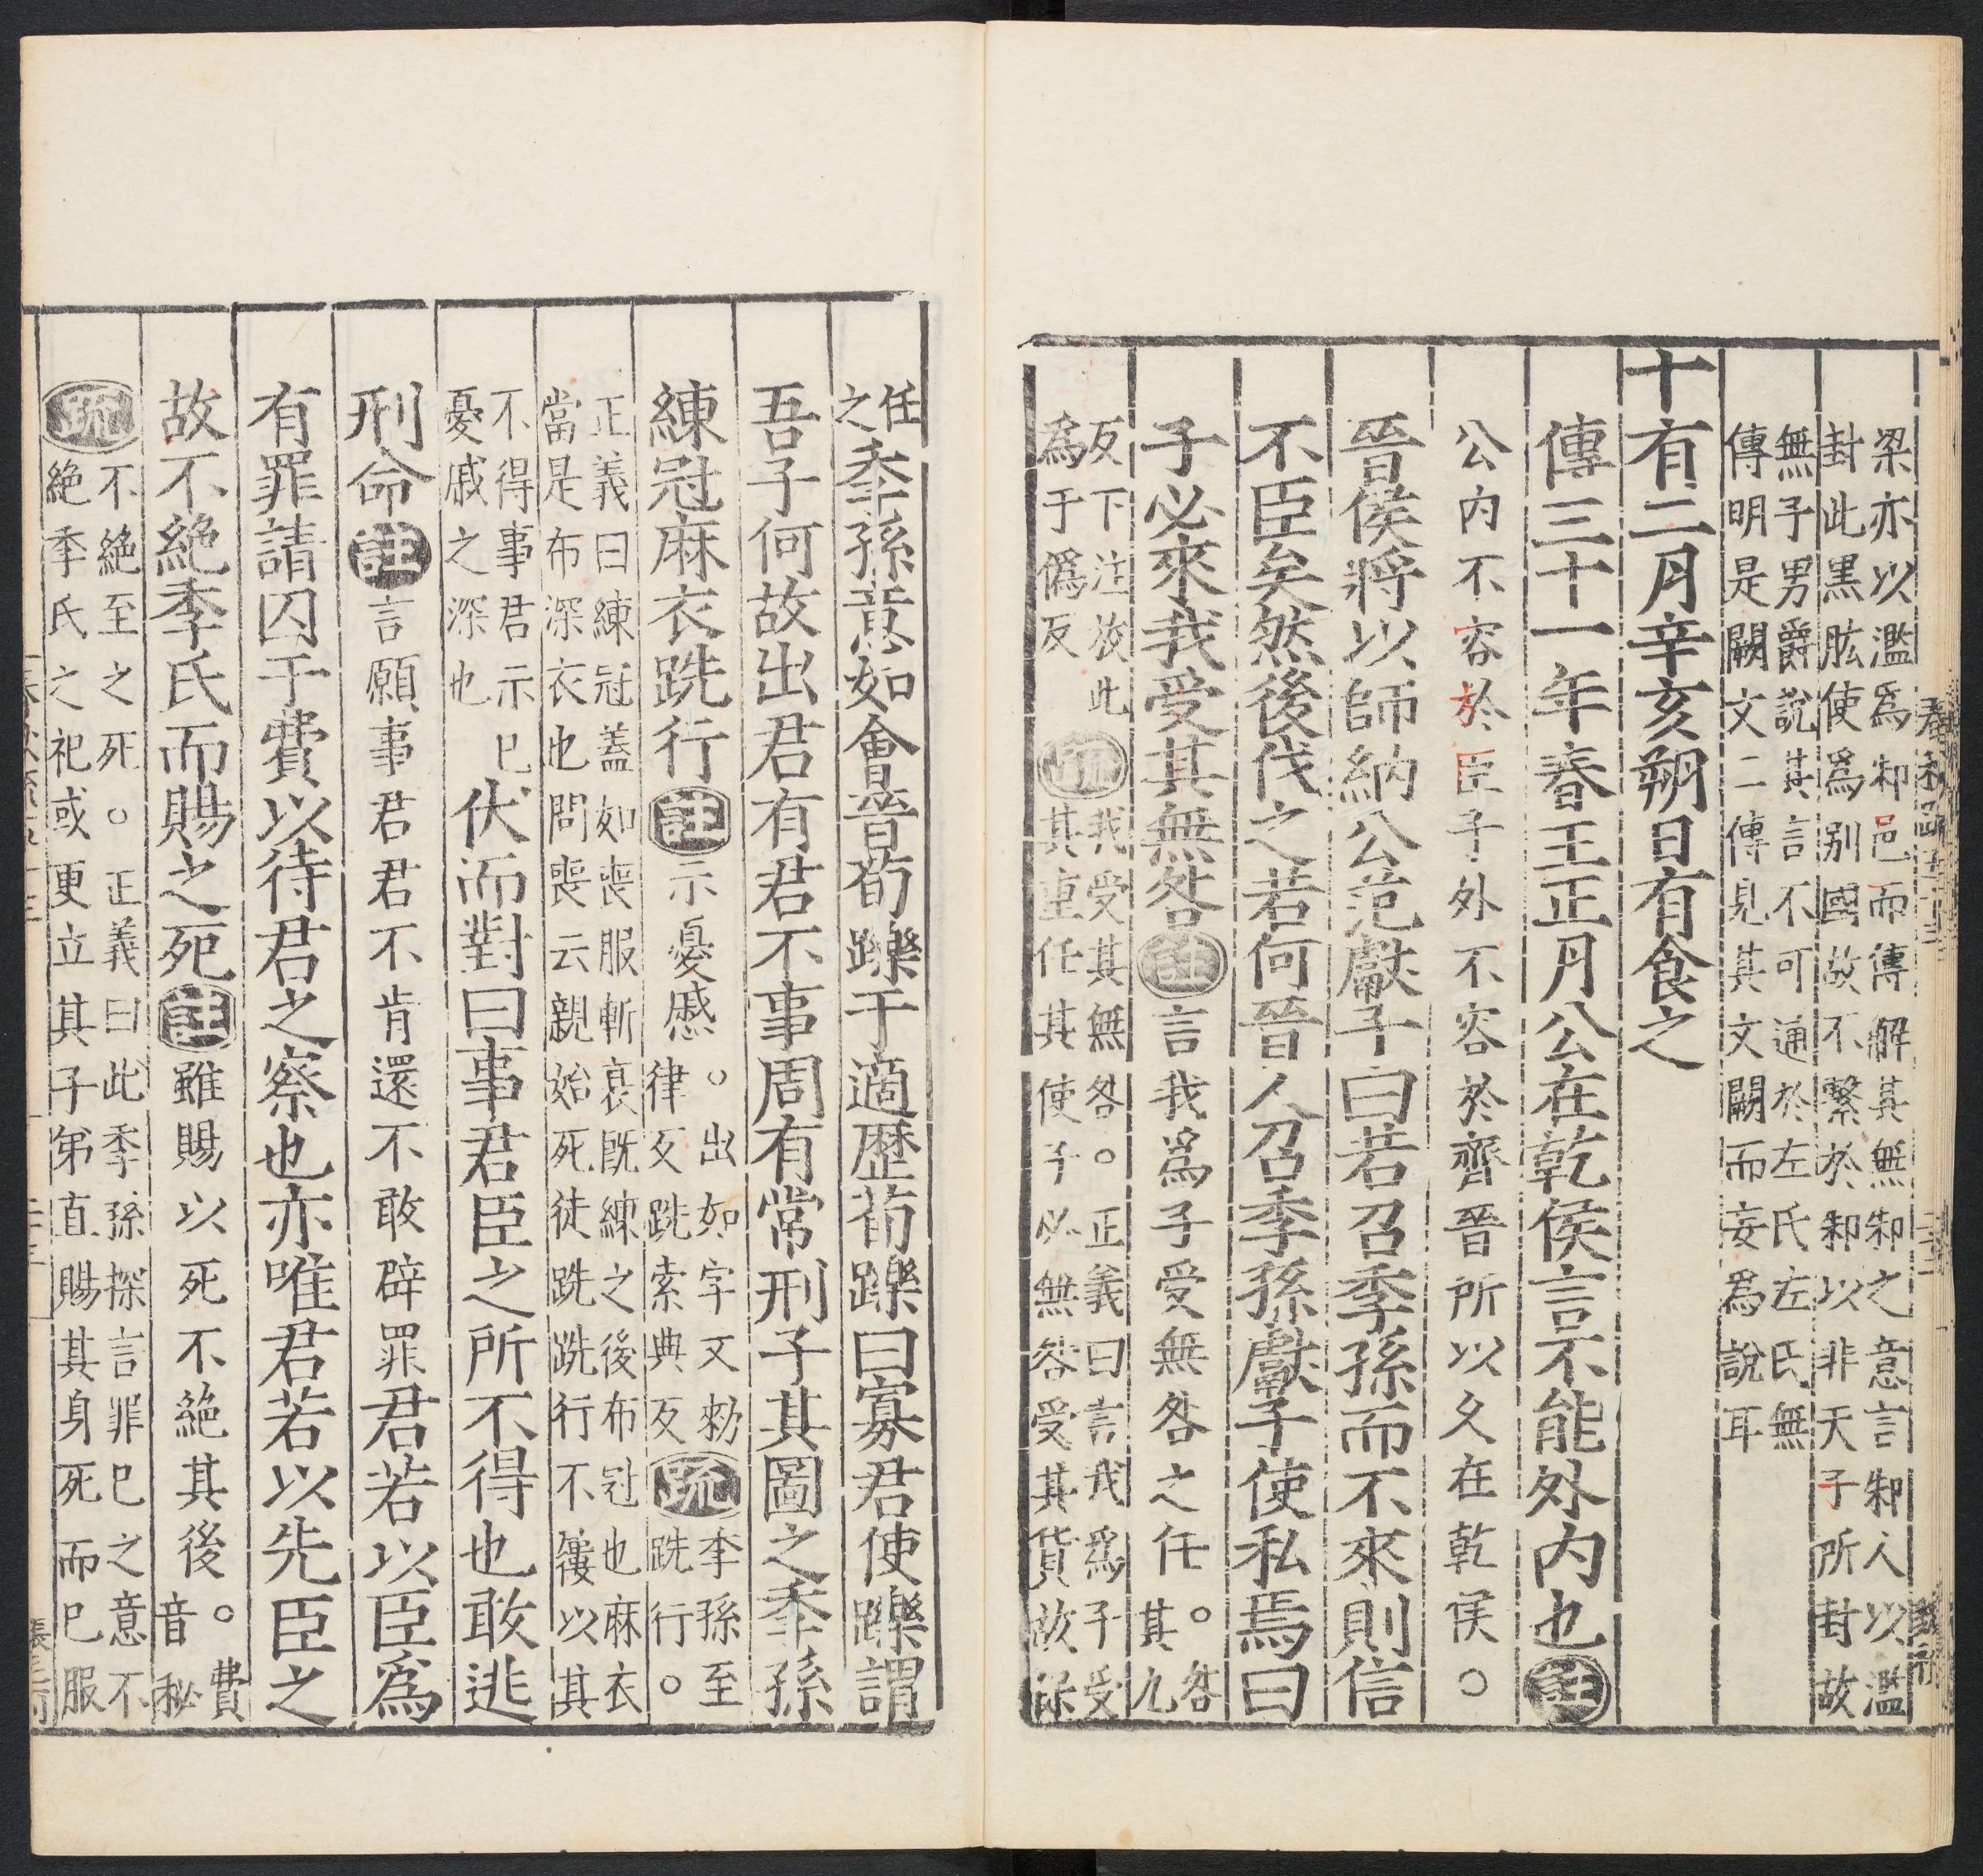 梁亦以濫爲邾邑而傳解其無邾之意言邾人以濫
封此黒肱使爲别國故不繫於邾以非天子所封故
無子男爵說其言不可通於左氏左氏無
傳明是闕文二傳見其文闕而妄爲說耳
十有二月辛亥朔日有食之
傳三十一年春王正月公在乾侯言不能外内也註
公内不容於臣子外不容於齊晉所以久在乾侯○
晉侯將以師納公范獻子曰若召季孫而不來則信
不臣矣然後伐之若何晉人召季孫獻子使私焉曰
子必來我受其無咎註言我爲子受無咎之任○咎
其九
反下注放此疏我受其無咎○正義曰言我爲子受
爲于僞反其重任其使子必無咎受其貨故保
任
之季孫意如會晉荀躒于適歷荀躒曰寡君使躒謂
吾子何故出君有君不事周有常刑子其圖之季孫
練冠麻衣跣行註示憂慼○出如字又勑
律反跣素典反疏季孫至
跣行○
正義曰練冠蓋如喪服斬衰既練之後布冠也麻衣
當是布深衣也問喪云親始死徒跣跣行不履以其
不得事君示已
憂戚之深也伏而對曰事君臣之所不得也敢逃
刑命註言願事君君不肯還不敢辟罪君若以臣爲
有罪請囚于費以待君之察也亦唯君若以先臣之
故不絶季氏而賜之死註雖賜以死不絶其後○費
音秘
疏不絶至之死○正義曰此季孫探言罪已之意不
絶季氏之祀或更立其子弟直賜其身死而已服